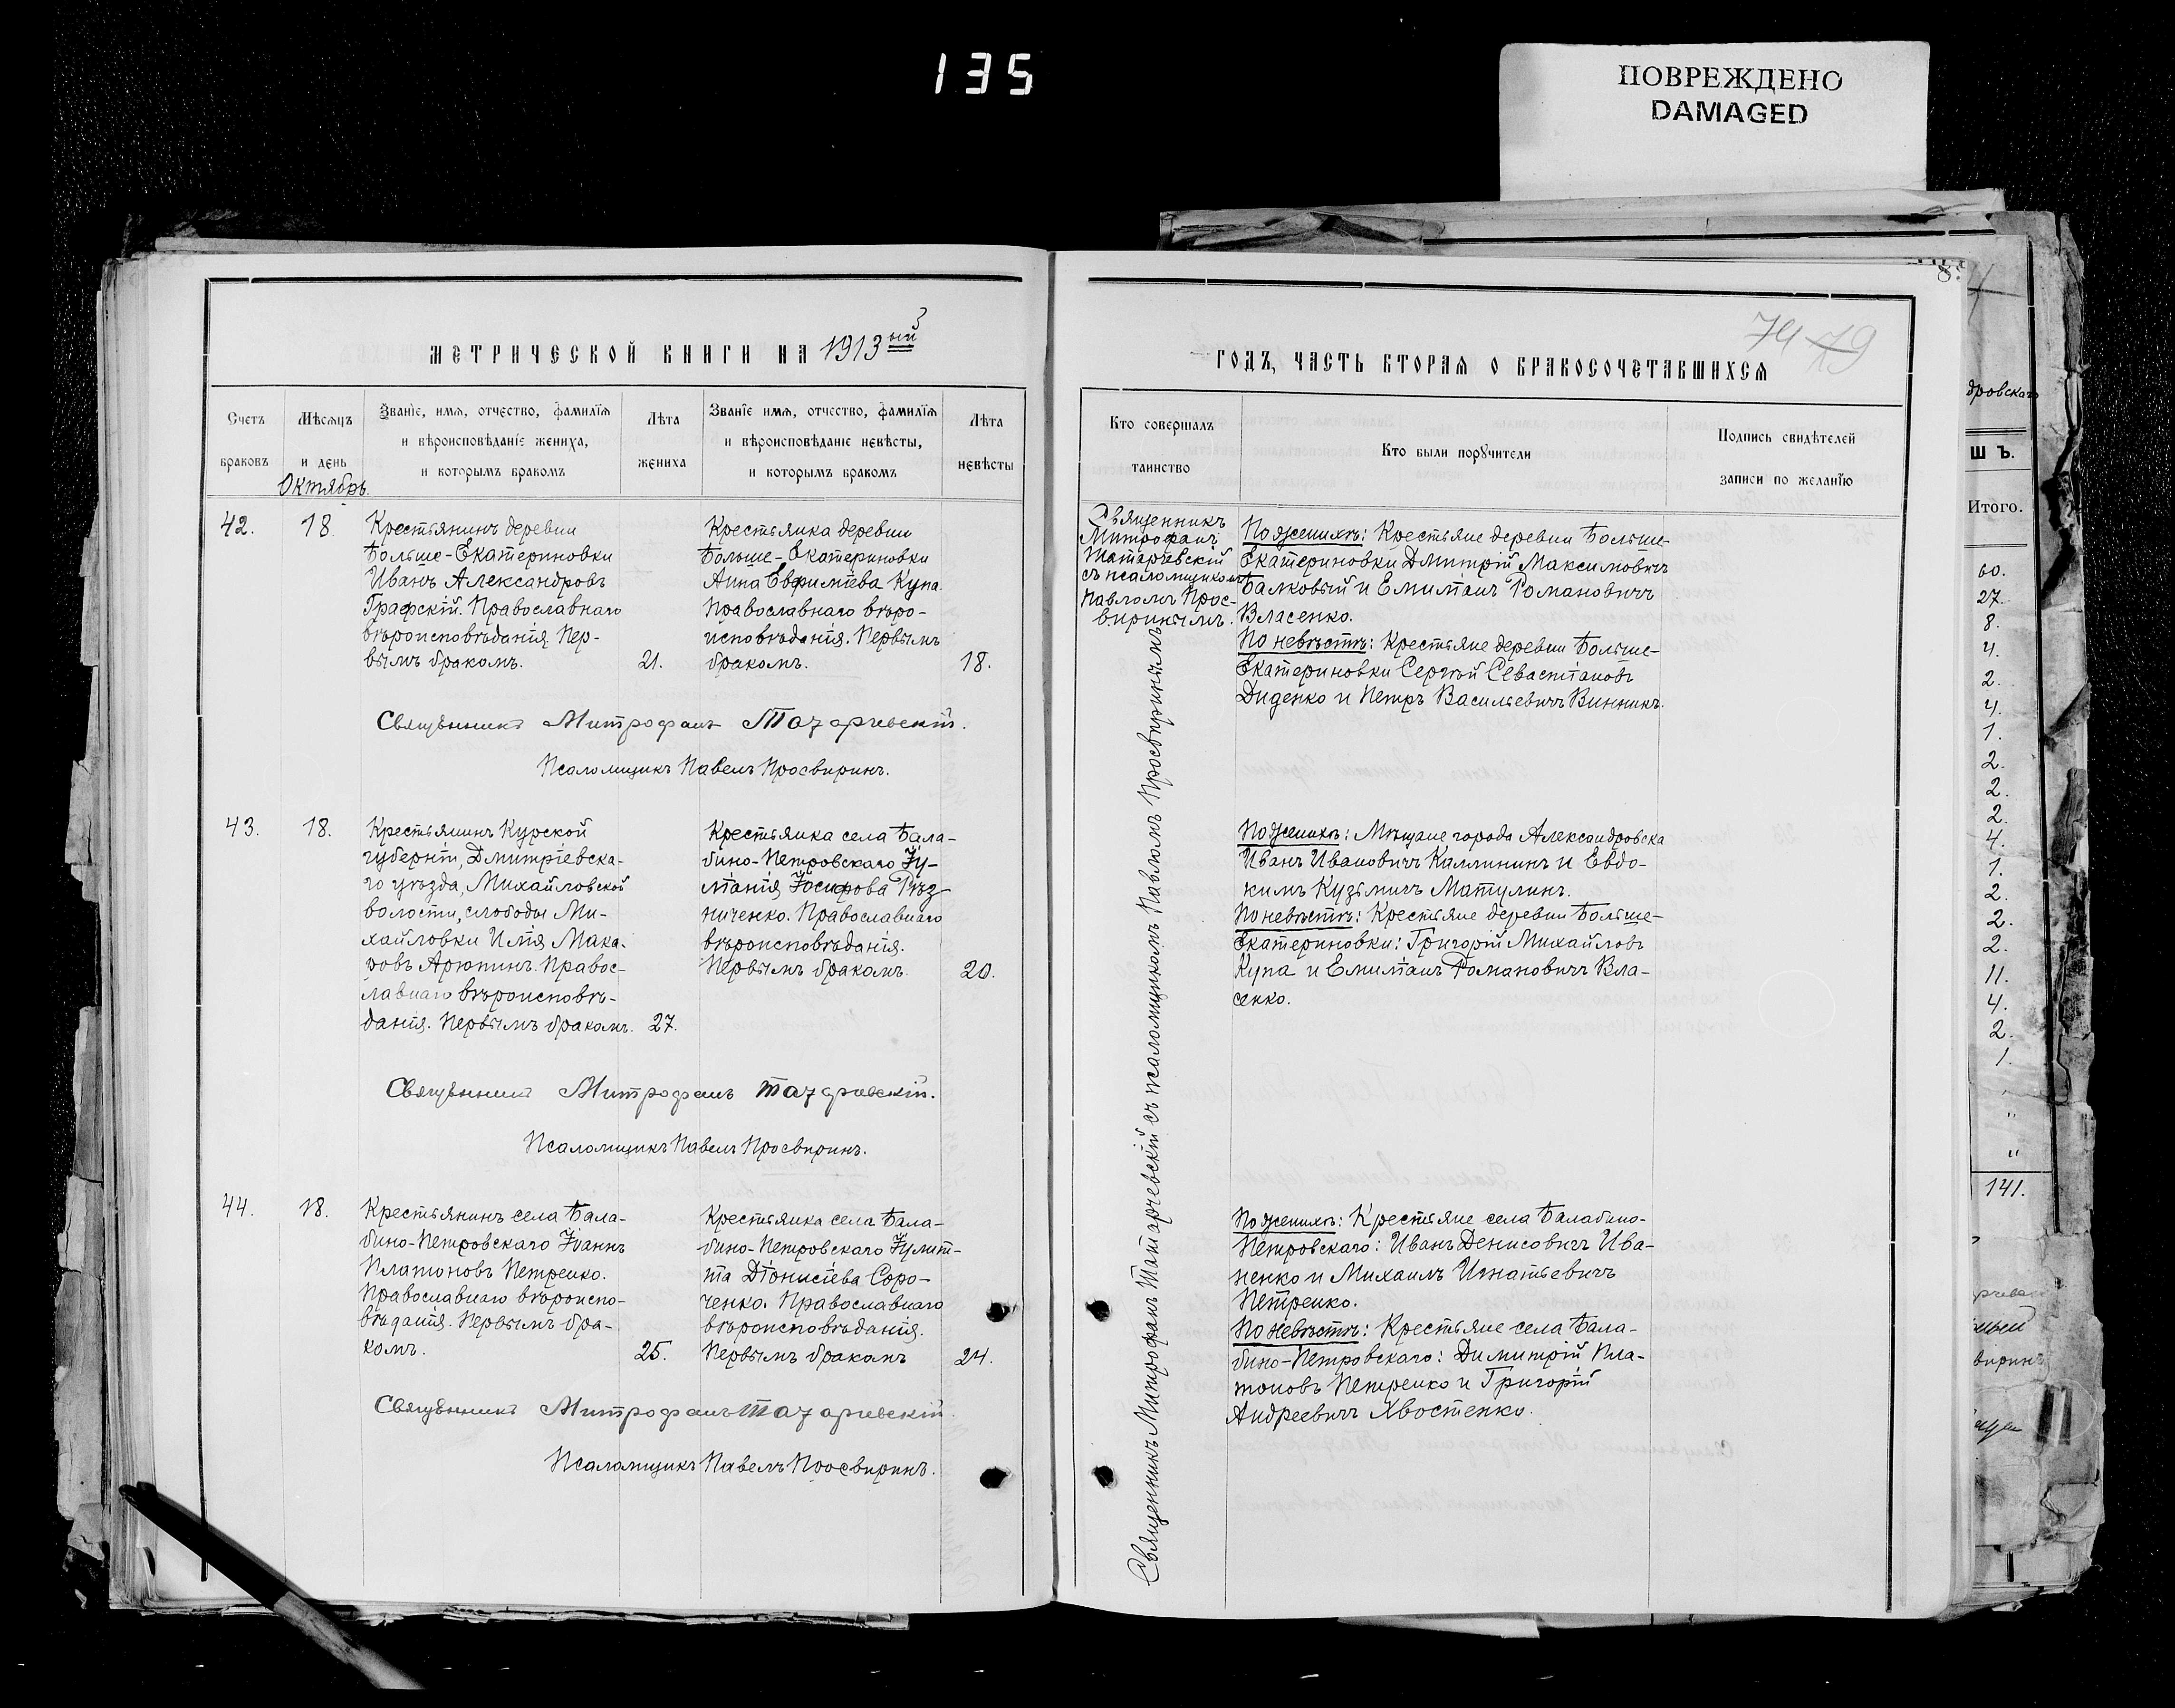 135
ПОВРЕЖДЕНО
DAMAGED
МЕТРИЧЕСКОЙ КНИГИ НА 1913ый
3
Счетъ браковъ
Мѣсяцъ и день
Званіе, имя, отчество, фамилія
и вѣроисповѣданіе жениха,
и которымъ бракомъ
Лѣта жениха
Званіе имя, отчество, фамилія
и вѣроисповѣданіе невѣсты,
и которымъ бракомъ
Лѣта невѣсты
Октябрь.
42.
18
Крестьянинъ деревни
Больше-Екатериновки
Иванъ Александровъ
Графскій. Православнаго
вѣроисповѣданія. Пер-
вымъ бракомъ.
21.
Крестьянка деревни
Больше-Екатериновки
Анна Евфиміева Купа.
Православнаго вѣро-
исповѣданія. Первымъ
бракомъ.
18.
Священникъ Митрофанъ Татаревскій.
Псаломщикъ Павелъ Просвиринъ.
43.
18.
Крестьянинъ Курской
губерніи, Дмитріевска-
го уѣзда, Михайловской
волости, слободы Ми-
хайловки Илія Мака-
ровъ Арютинъ. Правос-
лавнаго вѣроисповѣ-
данія. Первымъ бракомъ.
27.
Крестьянка села Бала-
бино-Петровскаго Іу-
ліанія Іосифова Рѣз-
ниченко. Православнаго
вѣроисповѣданія.
Первымъ бракомъ.
20.
Священникъ Митрофанъ Татаревскій.
Псаломщикъ Павелъ Просвиринъ.
44.
18.
Крестьянинъ села Бала-
бино-Петровскаго Іоаннъ
Платоновъ Петренко.
Православнаго вѣроиспо-
вѣданія. Первымъ бра-
комъ.
25.
Крестьянка села Бала-
бино-Петровскаго Іулит-
та Діонисіева Соро-
ченко. Православнаго
вѣроисповѣданія.
Первымъ бракомъ
24.
Священникъ Митрофанъ Татаревскій.
Псаломщикъ Павелъ Просвиринъ.
8
74 79
ГОДЪ, ЧАСТЬ ВТОРАЯ О БРАКОСОЧЕТАВШИХСЯ
Кто совершалъ
таинство
Кто были поручители
Подпись свидѣтелей
записи по желанію
Священникъ
Митрофанъ
Татаревскій
съ псаломщикомъ
Павломъ Прос-
виринымъ.
Священникъ Митрофанъ Татаревскій съ псаломщикомъ Павломъ Просвиринымъ
По женихѣ: Крестьяне деревни Больше-
Екатериновки Дмитрій Максимовичъ
Балковый и Емиліанъ Романовичъ
Власенко.
По невѣстѣ: Крестьяне деревни Больше-
Екатериновки Сергѣй Севастіановъ
Диденко и Петръ Васильевичъ Винникъ.
По женихѣ: Мѣщане города Александровска
Иванъ Ивановичъ Калининъ и Евдо-
кимъ Кузьмичъ Матулинъ.
По невѣстѣ: Крестьяне деревни Больше-
Екатериновки: Григорій Михайловъ
Купа и Емиліанъ Романовичъ Вла-
сенко.
По женихѣ: Крестьяне села Балабино-
Петровскаго: Иванъ Денисовичъ Ива-
ненко и Михаилъ Игнатьевичъ
Петренко.
По невѣстѣ: Крестьяне села Бала-
бино-Петровскаго: Димитрій Пла-
тоновъ Петренко и Григорій
Андреевичъ Хвостенко.
дровскаго
Ш Ъ.
Итого.
60.
27.
8.
4.
2.
4.
1.
2.
2.
2.
4.
1.
2.
2.
2.
11.
4.
2.
1.
"
"
141.